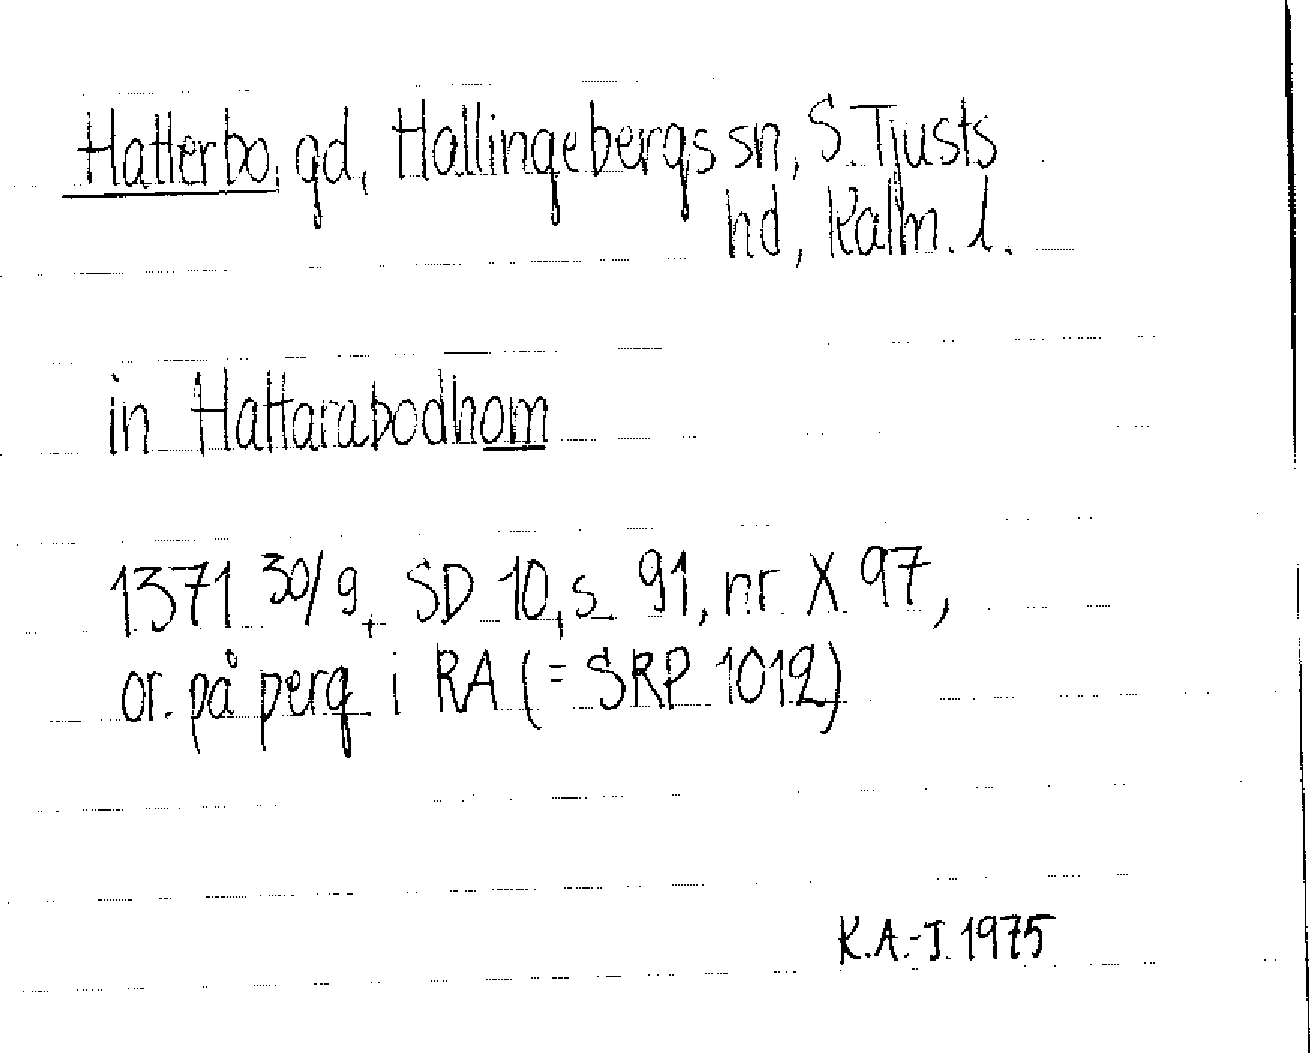 Hatterbo, gd, Hallingebergs sn, S. Tjusts
hd, Kalm. l.
in Hattarabodhom
1371 30/9, SD 10, s 91, nr X 97,
or. på perg i RA (= SRP 1012)
K.A.-J. 1975